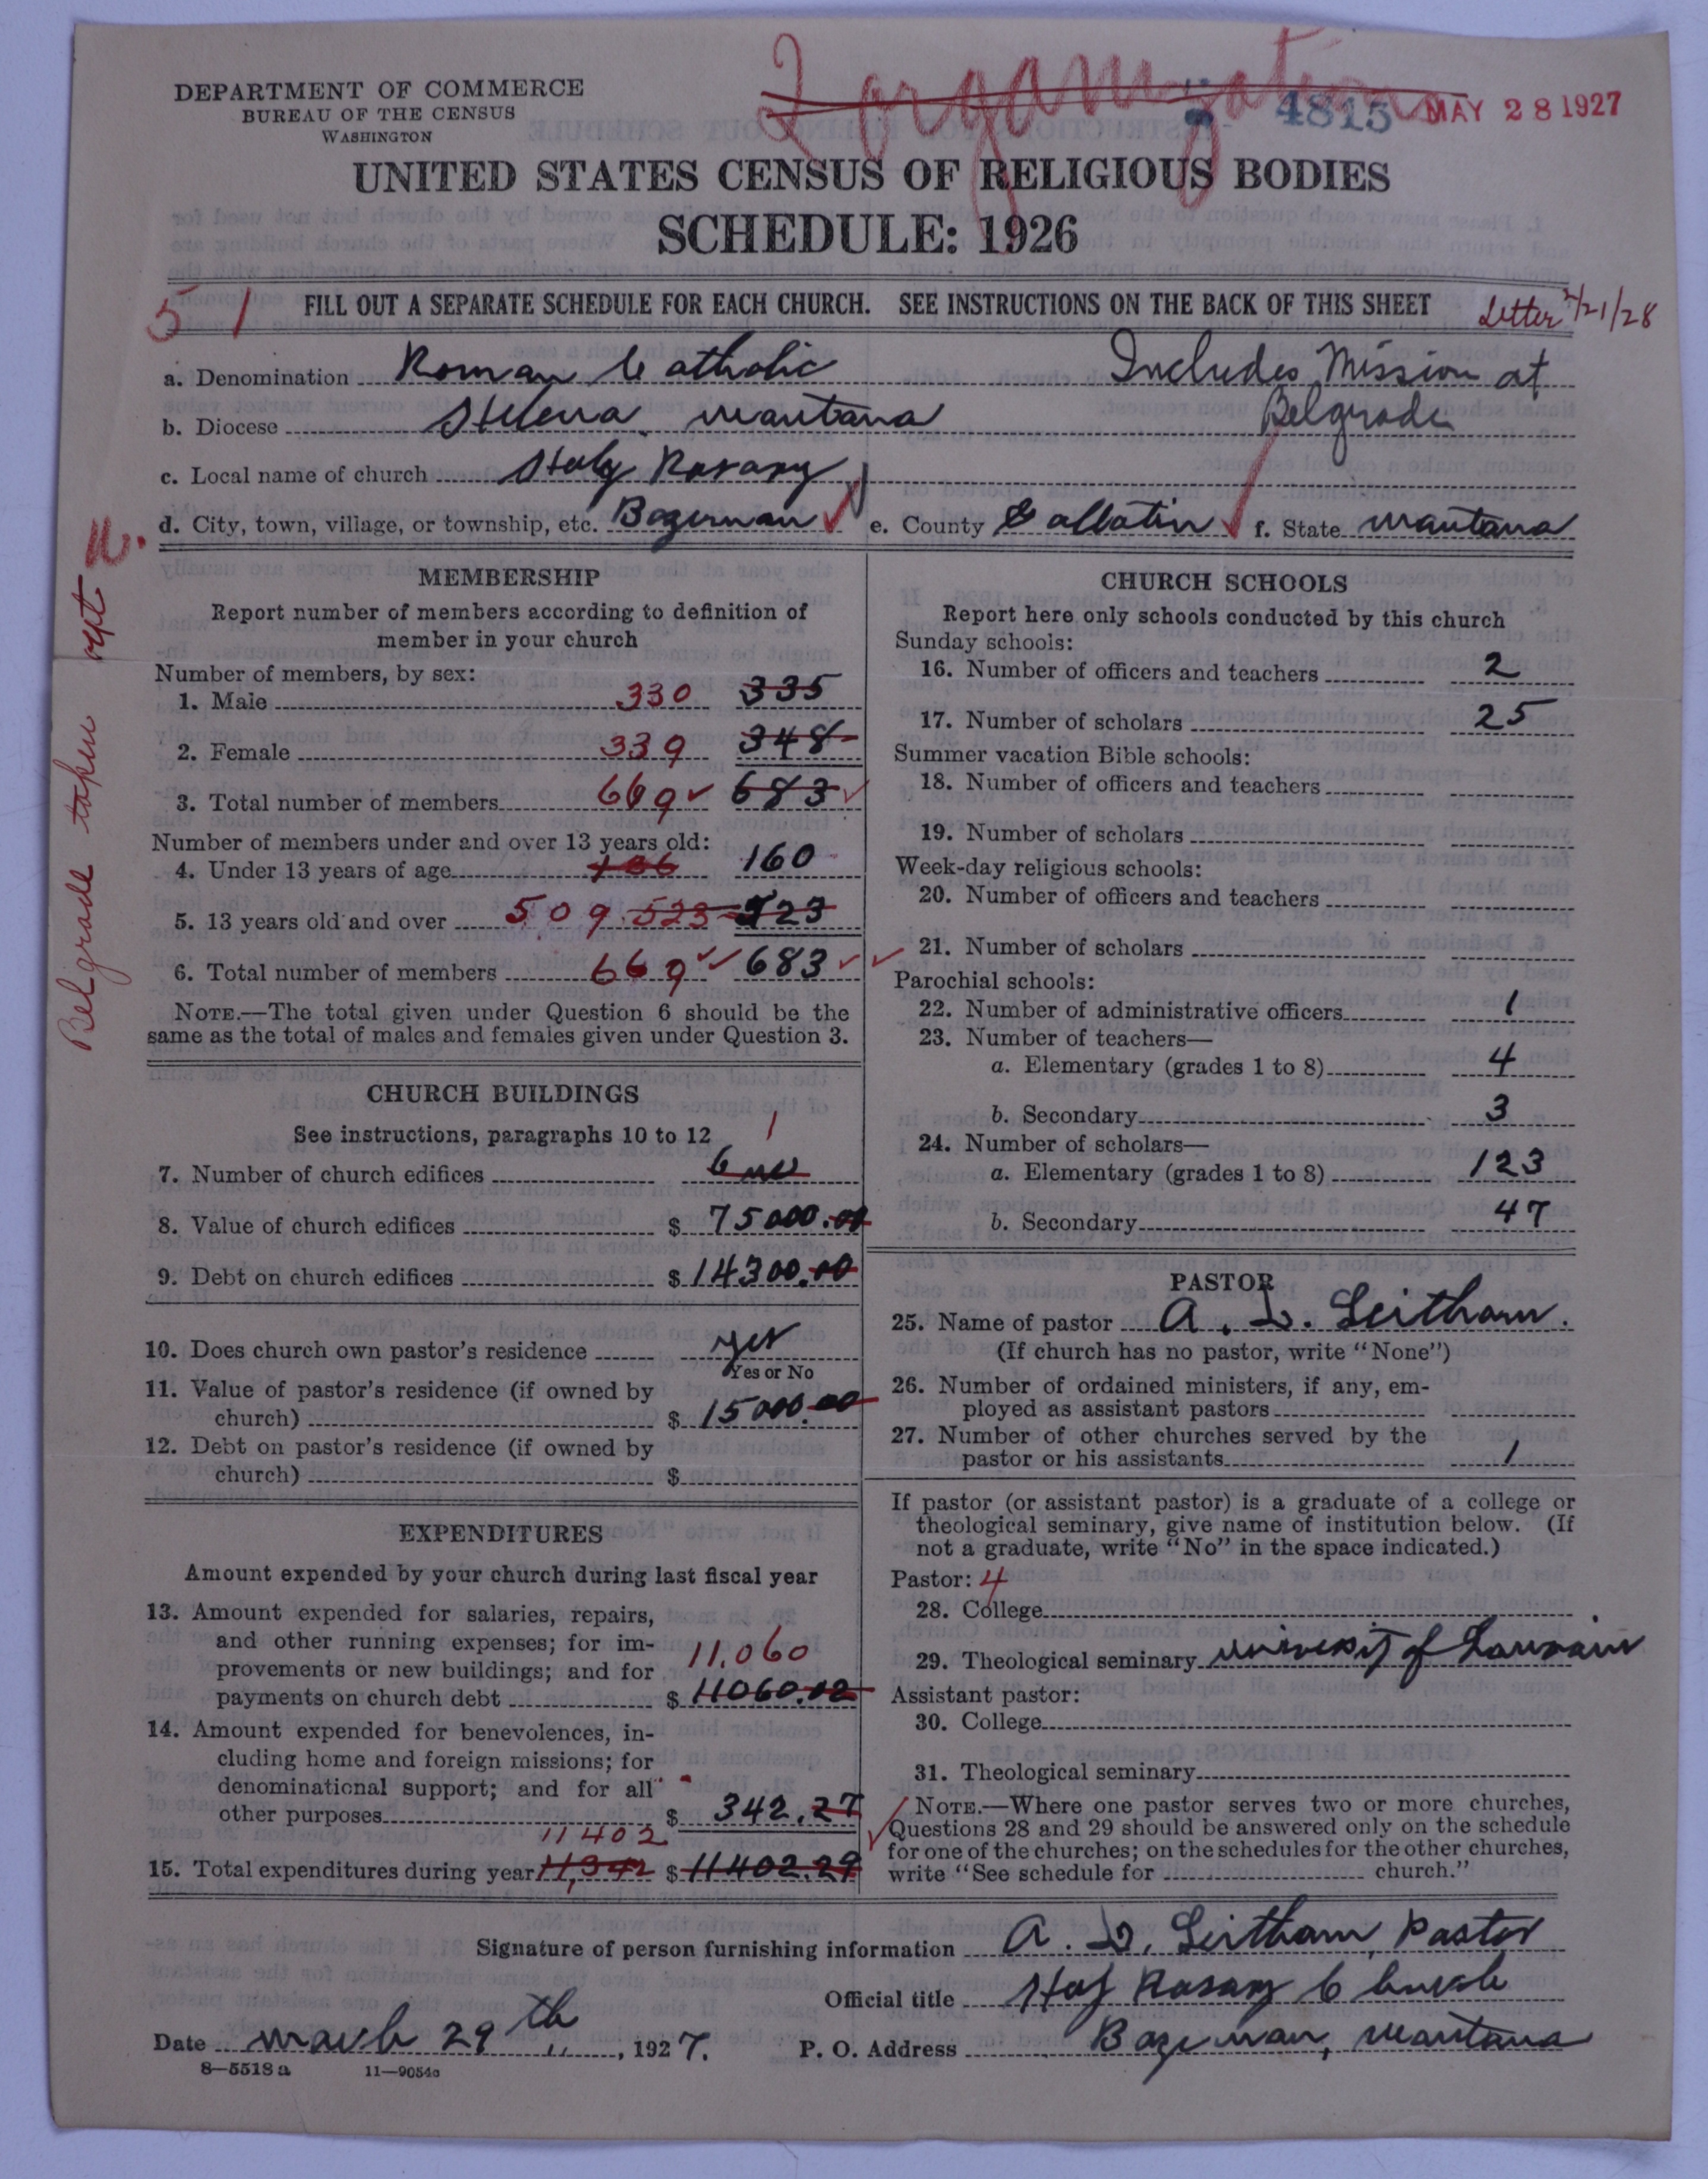 2 organizations
4815 MAY 28 1927
DEPARTMENT OF COMMERCE
BUREAU OF THE CENSUS
WASHINGTON
UNITED STATES CENSUS OF RELIGIOUS BODIES
SCHEDULE: 1926
5 1 FILL OUT A SEPARATE SCHEDULE FOR EACH CHURCH. SEE INSTRUCTIONS ON THE BACK OF THIS SHEET Letter 2/21/28
a. Denomination Roman Catholic Includes Mission at
b. Diocese Helena. Montana Belgrade
c. Local name of church Holy Rosary
d. City, town, village, or township, etc. Bozeman e. County Gallatin f. State Montana
Belgrade taken out
MEMBERSHIP
Report number of members according to definition of
member in your church
Number of members, by sex:
1. Male 330 335
2. Female 339 348
3. Total number of members 669 683
Number of members under and over 13 years old:
4. Under 13 years of age 160
5. 13 years old and over 509 523 523
6. Total number of members 669 683
NOTE.—The total given under Question 6 should be the
same as the total of males and females given under Question 3.
CHURCH BUILDINGS
See instructions, paragraphs 10 to 12 1
7. Number of church edifices One
8. Value of church edifices $ 75000.00
9. Debt on church edifices $ 14300.00
10. Does church own pastor's residence yes
Yes or No
11. Value of pastor's residence (if owned by
church) $ 15000.00
12. Debt on pastor's residence (if owned by
church) $
EXPENDITURES
Amount expended by your church during last fiscal year
13. Amount expended for salaries, repairs,
and other running expenses; for im-
provements or new buildings; and for 11,060
payments on church debt $ 11060.02
14. Amount expended for benevolences, in-
cluding home and foreign missions; for
denominational support; and for all
other purposes $ 342.27
11402
15. Total expenditures during year 11,342 $ 11402.29
CHURCH SCHOOLS
Report here only schools conducted by this church
Sunday schools:
16. Number of officers and teachers 2
17. Number of scholars 25
Summer vacation Bible schools:
18. Number of officers and teachers
19. Number of scholars
Week-day religious schools:
20. Number of officers and teachers
21. Number of scholars
Parochial schools:
22. Number of administrative officers 1
23. Number of teachers—
a. Elementary (grades 1 to 8) 4
b. Secondary 3
24. Number of scholars—
a. Elementary (grades 1 to 8) 123
b. Secondary 47
PASTOR
25. Name of pastor A. D. Leitham.
(If church has no pastor, write "None")
26. Number of ordained ministers, if any, em-
ployed as assistant pastors
27. Number of other churches served by the
pastor or his assistants 1
If pastor (or assistant pastor) is a graduate of a college or
theological seminary, give name of institution below. (If
not a graduate, write "No" in the space indicated.)
Pastor: 4
28. College
29. Theological seminary University of Louvain
Assistant pastor:
30. College
31. Theological seminary
NOTE.—Where one pastor serves two or more churches,
Questions 28 and 29 should be answered only on the schedule
for one of the churches; on the schedules for the other churches,
write "See schedule for church."
Signature of person furnishing information A. D. Leitham, Pastor
Official title Holy Rosary Church
Date March 29th, 1927. P. O. Address Bozeman, Montana
8—5518 a 11—9054c